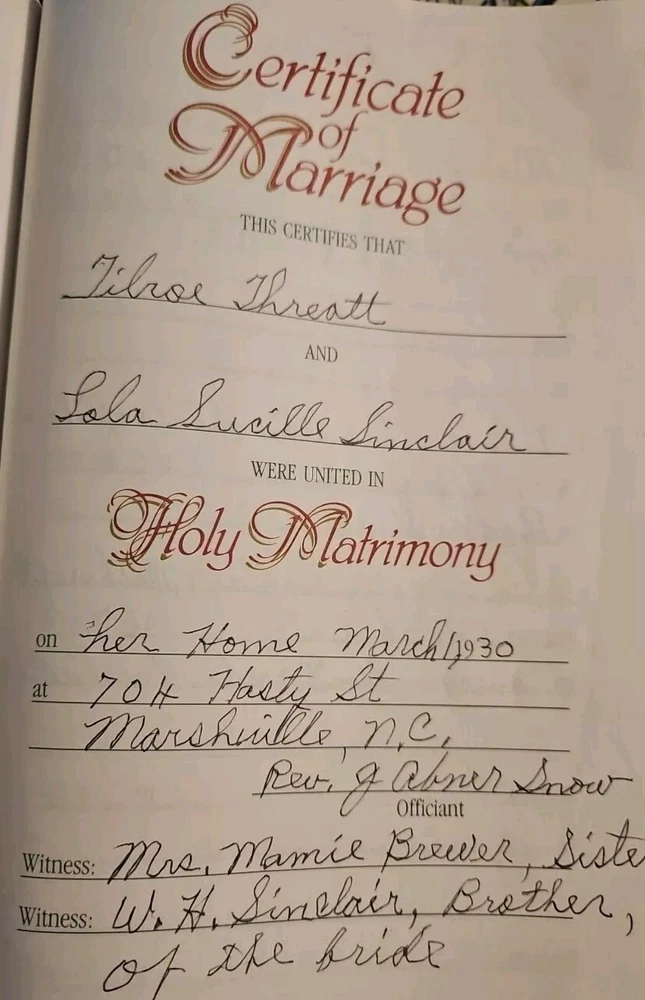 Certificate
of
Marriage
THIS CERTIFIES THAT
Tilroe Threatt
AND
Lola Lucille Sinclair
WERE UNITED IN
Holy Matrimony
on her Home March 1, 1930
at 704 Hasty St
Marshville, N.C.
Rev. J Abner Snow
Officiant
Witness: Mrs. Mamie Brewer, Siste
Witness: W. H. Sinclair, Brother,
of the bride